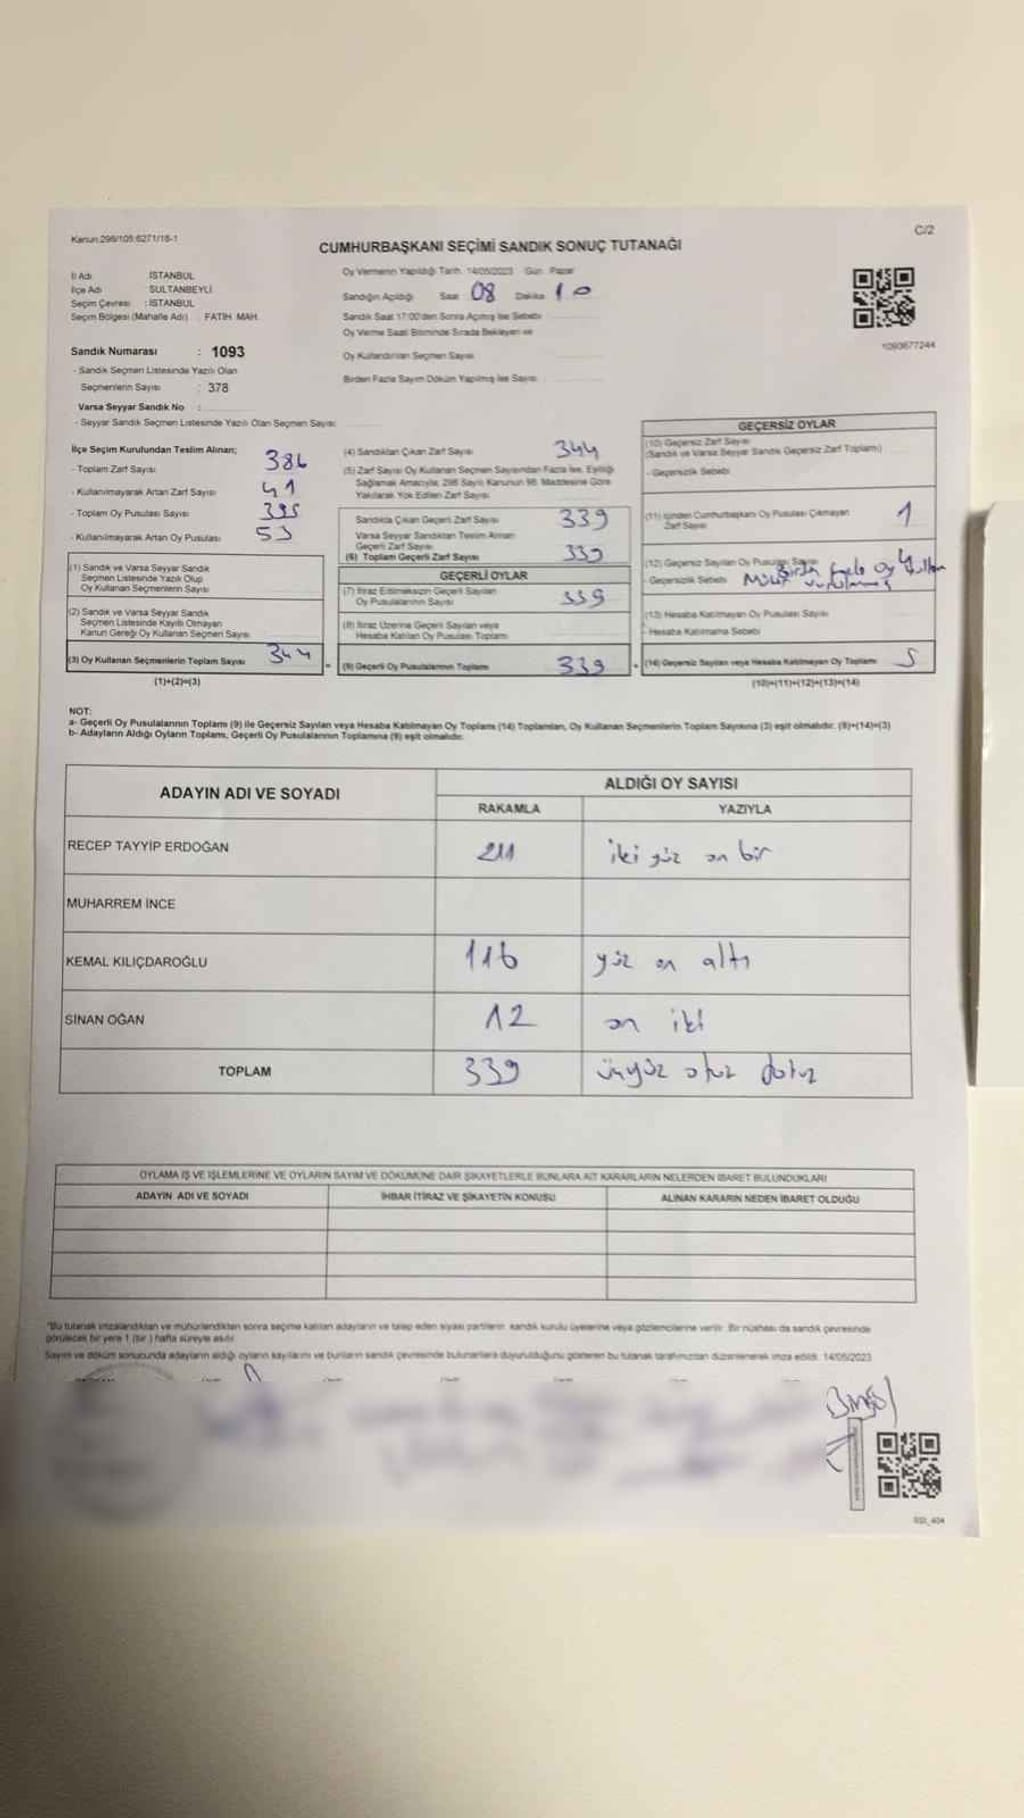 Kanun:298/105;6271/18-1
C/2
CUMHURBAŞKANI SEÇİMİ SANDIK SONUÇ TUTANAĞI
İl Adı İSTANBUL
İlçe Adı SULTANBEYLİ
Seçim Çevresi : İSTANBUL
Seçim Bölgesi (Mahalle Adı) FATİH MAH.
Oy Vermenin Yapıldığı Tarih: 14/05/2023 Gün: Pazar
Sandığın Açıldığı Saat 08 Dakika 10
Sandık Saat 17:00'den Sonra Açılmış İse Sebebi
Oy Verme Saati Bitiminde Sırada Bekleyen ve
Oy Kullandırılan Seçmen Sayısı
Birden Fazla Sayım Döküm Yapılmış İse Sayısı
1093677244
Sandık Numarası : 1093
- Sandık Seçmen Listesinde Yazılı Olan
Seçmenlerin Sayısı : 378
Varsa Seyyar Sandık No :
- Seyyar Sandık Seçmen Listesinde Yazılı Olan Seçmen Sayısı:
İlçe Seçim Kurulundan Teslim Alınan;
- Toplam Zarf Sayısı 386
- Kullanılmayarak Artan Zarf Sayısı 41
- Toplam Oy Pusulası Sayısı 395
- Kullanılmayarak Artan Oy Pusulası 53
(1) Sandık ve Varsa Seyyar Sandık
Seçmen Listesinde Yazılı Olup
Oy Kullanan Seçmenlerin Sayısı
(2) Sandık ve Varsa Seyyar Sandık
Seçmen Listesinde Kayıtlı Olmayan
Kanun Gereği Oy Kullanan Seçmen Sayısı
(3) Oy Kullanan Seçmenlerin Toplam Sayısı 344
(1)+(2)=(3)
(4) Sandıktan Çıkan Zarf Sayısı 344
(5) Zarf Sayısı Oy Kullanan Seçmen Sayısından Fazla İse, Eşitliği
Sağlamak Amacıyla, 298 Sayılı Kanunun 98. Maddesine Göre
Yakılarak Yok Edilen Zarf Sayısı
Sandıkta Çıkan Geçerli Zarf Sayısı 339
Varsa Seyyar Sandıktan Teslim Alınan
Geçerli Zarf Sayısı
(6) Toplam Geçerli Zarf Sayısı 339
GEÇERLİ OYLAR
(7) İtiraz Edilmeksizin Geçerli Sayılan
Oy Pusulalarının Sayısı 339
(8) İtiraz Üzerine Geçerli Sayılan veya
Hesaba Katılan Oy Pusulası Toplamı
(9) Geçerli Oy Pusulalarının Toplamı 339
GEÇERSİZ OYLAR
(10) Geçersiz Zarf Sayısı
(Sandık ve Varsa Seyyar Sandık Geçersiz Zarf Toplamı)
- Geçersizlik Sebebi
(11) İçinden Cumhurbaşkanı Oy Pusulası Çıkmayan
Zarf Sayısı 1
(12) Geçersiz Sayılan Oy Pusulası Sayısı 4
- Geçersizlik Sebebi Birden fazla oy
(13) Hesaba Katılmayan Oy Pusulası Sayısı
- Hesaba Katılmama Sebebi
(14) Geçersiz Sayılan veya Hesaba Katılmayan Oy Toplamı 5
(10)+(11)+(12)+(13)=(14)
NOT:
a- Geçerli Oy Pusulalarının Toplamı (9) ile Geçersiz Sayılan veya Hesaba Katılmayan Oy Toplamı (14) Toplamları, Oy Kullanan Seçmenlerin Toplam Sayısına (3) eşit olmalıdır. (9)+(14)=(3)
b- Adayların Aldığı Oyların Toplamı, Geçerli Oy Pusulalarının Toplamına (9) eşit olmalıdır.
ADAYIN ADI VE SOYADI
ALDIĞI OY SAYISI
RAKAMLA YAZIYLA
RECEP TAYYİP ERDOĞAN 211 iki yüz on bir
MUHARREM İNCE
KEMAL KILIÇDAROĞLU 116 yüz on altı
SİNAN OĞAN 12 on iki
TOPLAM 339 üçyüz otuz dokuz
OYLAMA İŞ VE İŞLEMLERİNE VE OYLARIN SAYIM VE DÖKÜMÜNE DAİR ŞİKAYETLERLE BUNLARA AİT KARARLARIN NELERDEN İBARET BULUNDUKLARI
ADAYIN ADI VE SOYADI İHBAR İTİRAZ VE ŞİKAYETİN KONUSU ALINAN KARARIN NEDEN İBARET OLDUĞU
"Bu tutanak imzalandıktan ve mühürlendikten sonra seçime katılan adayların ve talep eden siyasi partilerin sandık kurulu üyelerine veya gözlemcilerine verilir. Bir nüshası da sandık çevresinde
görülecek bir yere 1 (bir) hafta süreyle asılır.
Sayım ve döküm sonucunda adayların aldığı oyların sayılarını ve bunların sandık çevresinde bulunanlara duyurulduğunu gösteren bu tutanak tarafımızdan düzenlenerek imza edildi. 14/05/2023